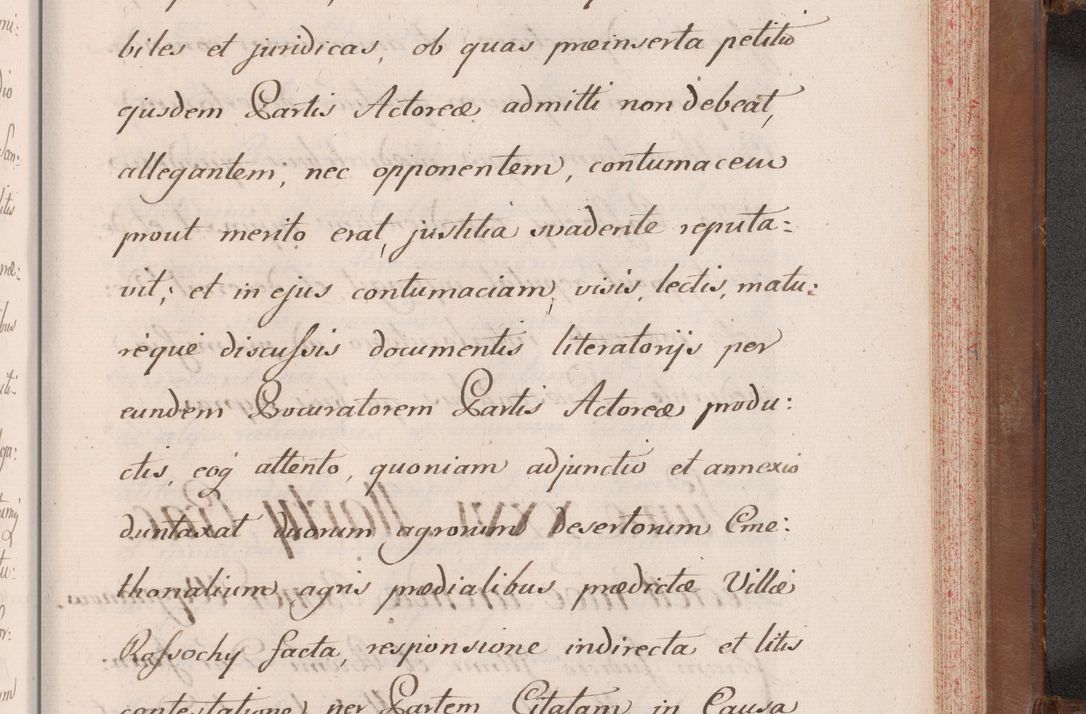 biles et juridicas, ob quas præinserta petitio
ejusdem Partis Actoreæ admitti non debeat,
allegantem, nec opponentem, contumacem
prout merito erat, justitia svadente reputa:
vit; et in ejus contumaciam, visis, lectis, matu:
réqué discussis documentis literatorijs per
eundem Procuratorem Partis Actoreæ produ:
ctis, eoq́ attento, quoniam adjunctio et annexio
duntaxat duorum agrorum desertorum Cme:
thonalium, agris prædialibus prædictæ Villæ
Rossochy facta, responsione indirecta et litis
contestatione per Partem Citatam in Causa